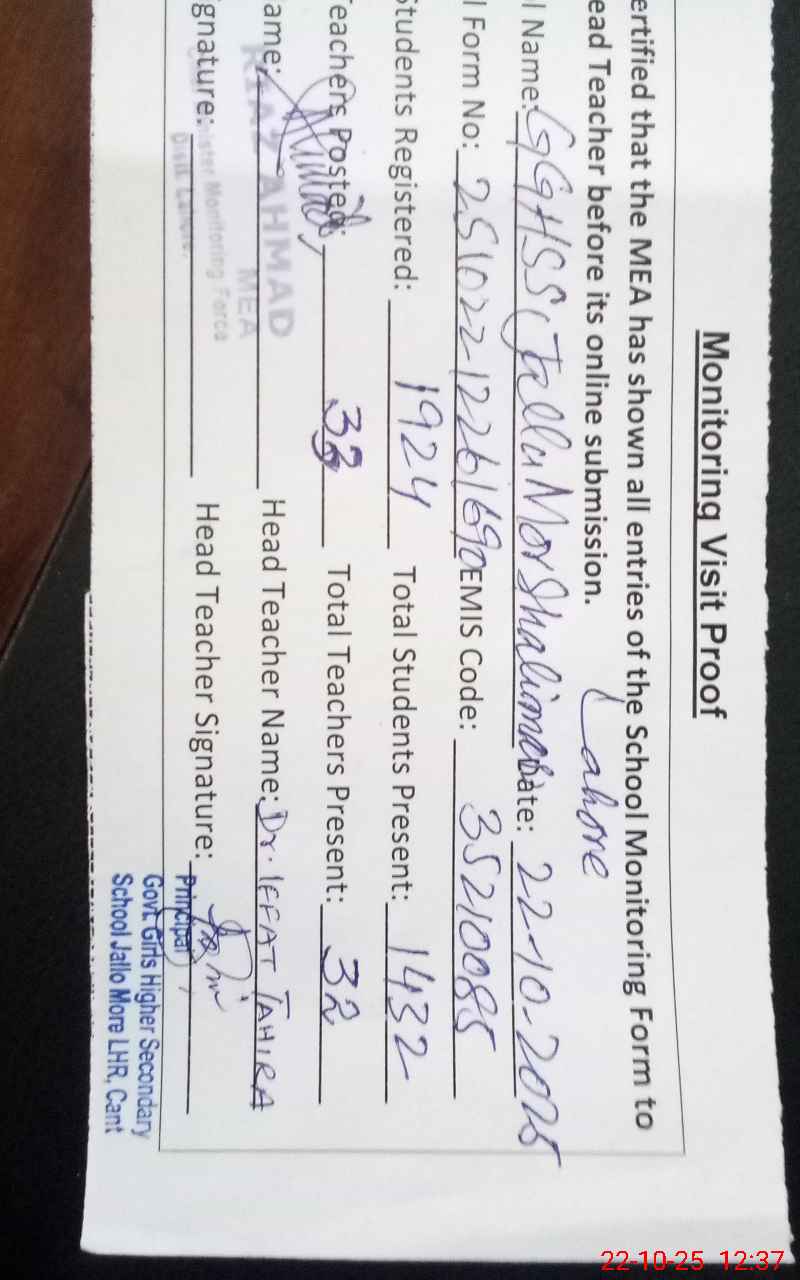 Monitoring Visit Proof
ertified that the MEA has shown all entries of the School Monitoring Form to
ead Teacher before its online submission.
Lahore
l Name: GGHSS Jallu Mor Shalimar Date: 22-10-2025
l Form No: 25102212261690 EMIS Code: 35210085
Students Registered: 1924 Total Students Present: 1432
Teachers Posted: 33 Total Teachers Present: 32
ame: RIAZ AHMAD Head Teacher Name: Dr. IFFAT TAHIRA
MEA
gnature: Head Teacher Signature:
Monitoring Force
Distt. Lahore.
Principal
Govt. Girls Higher Secondary
School Jallo More LHR, Cant
22-10-25 12:37